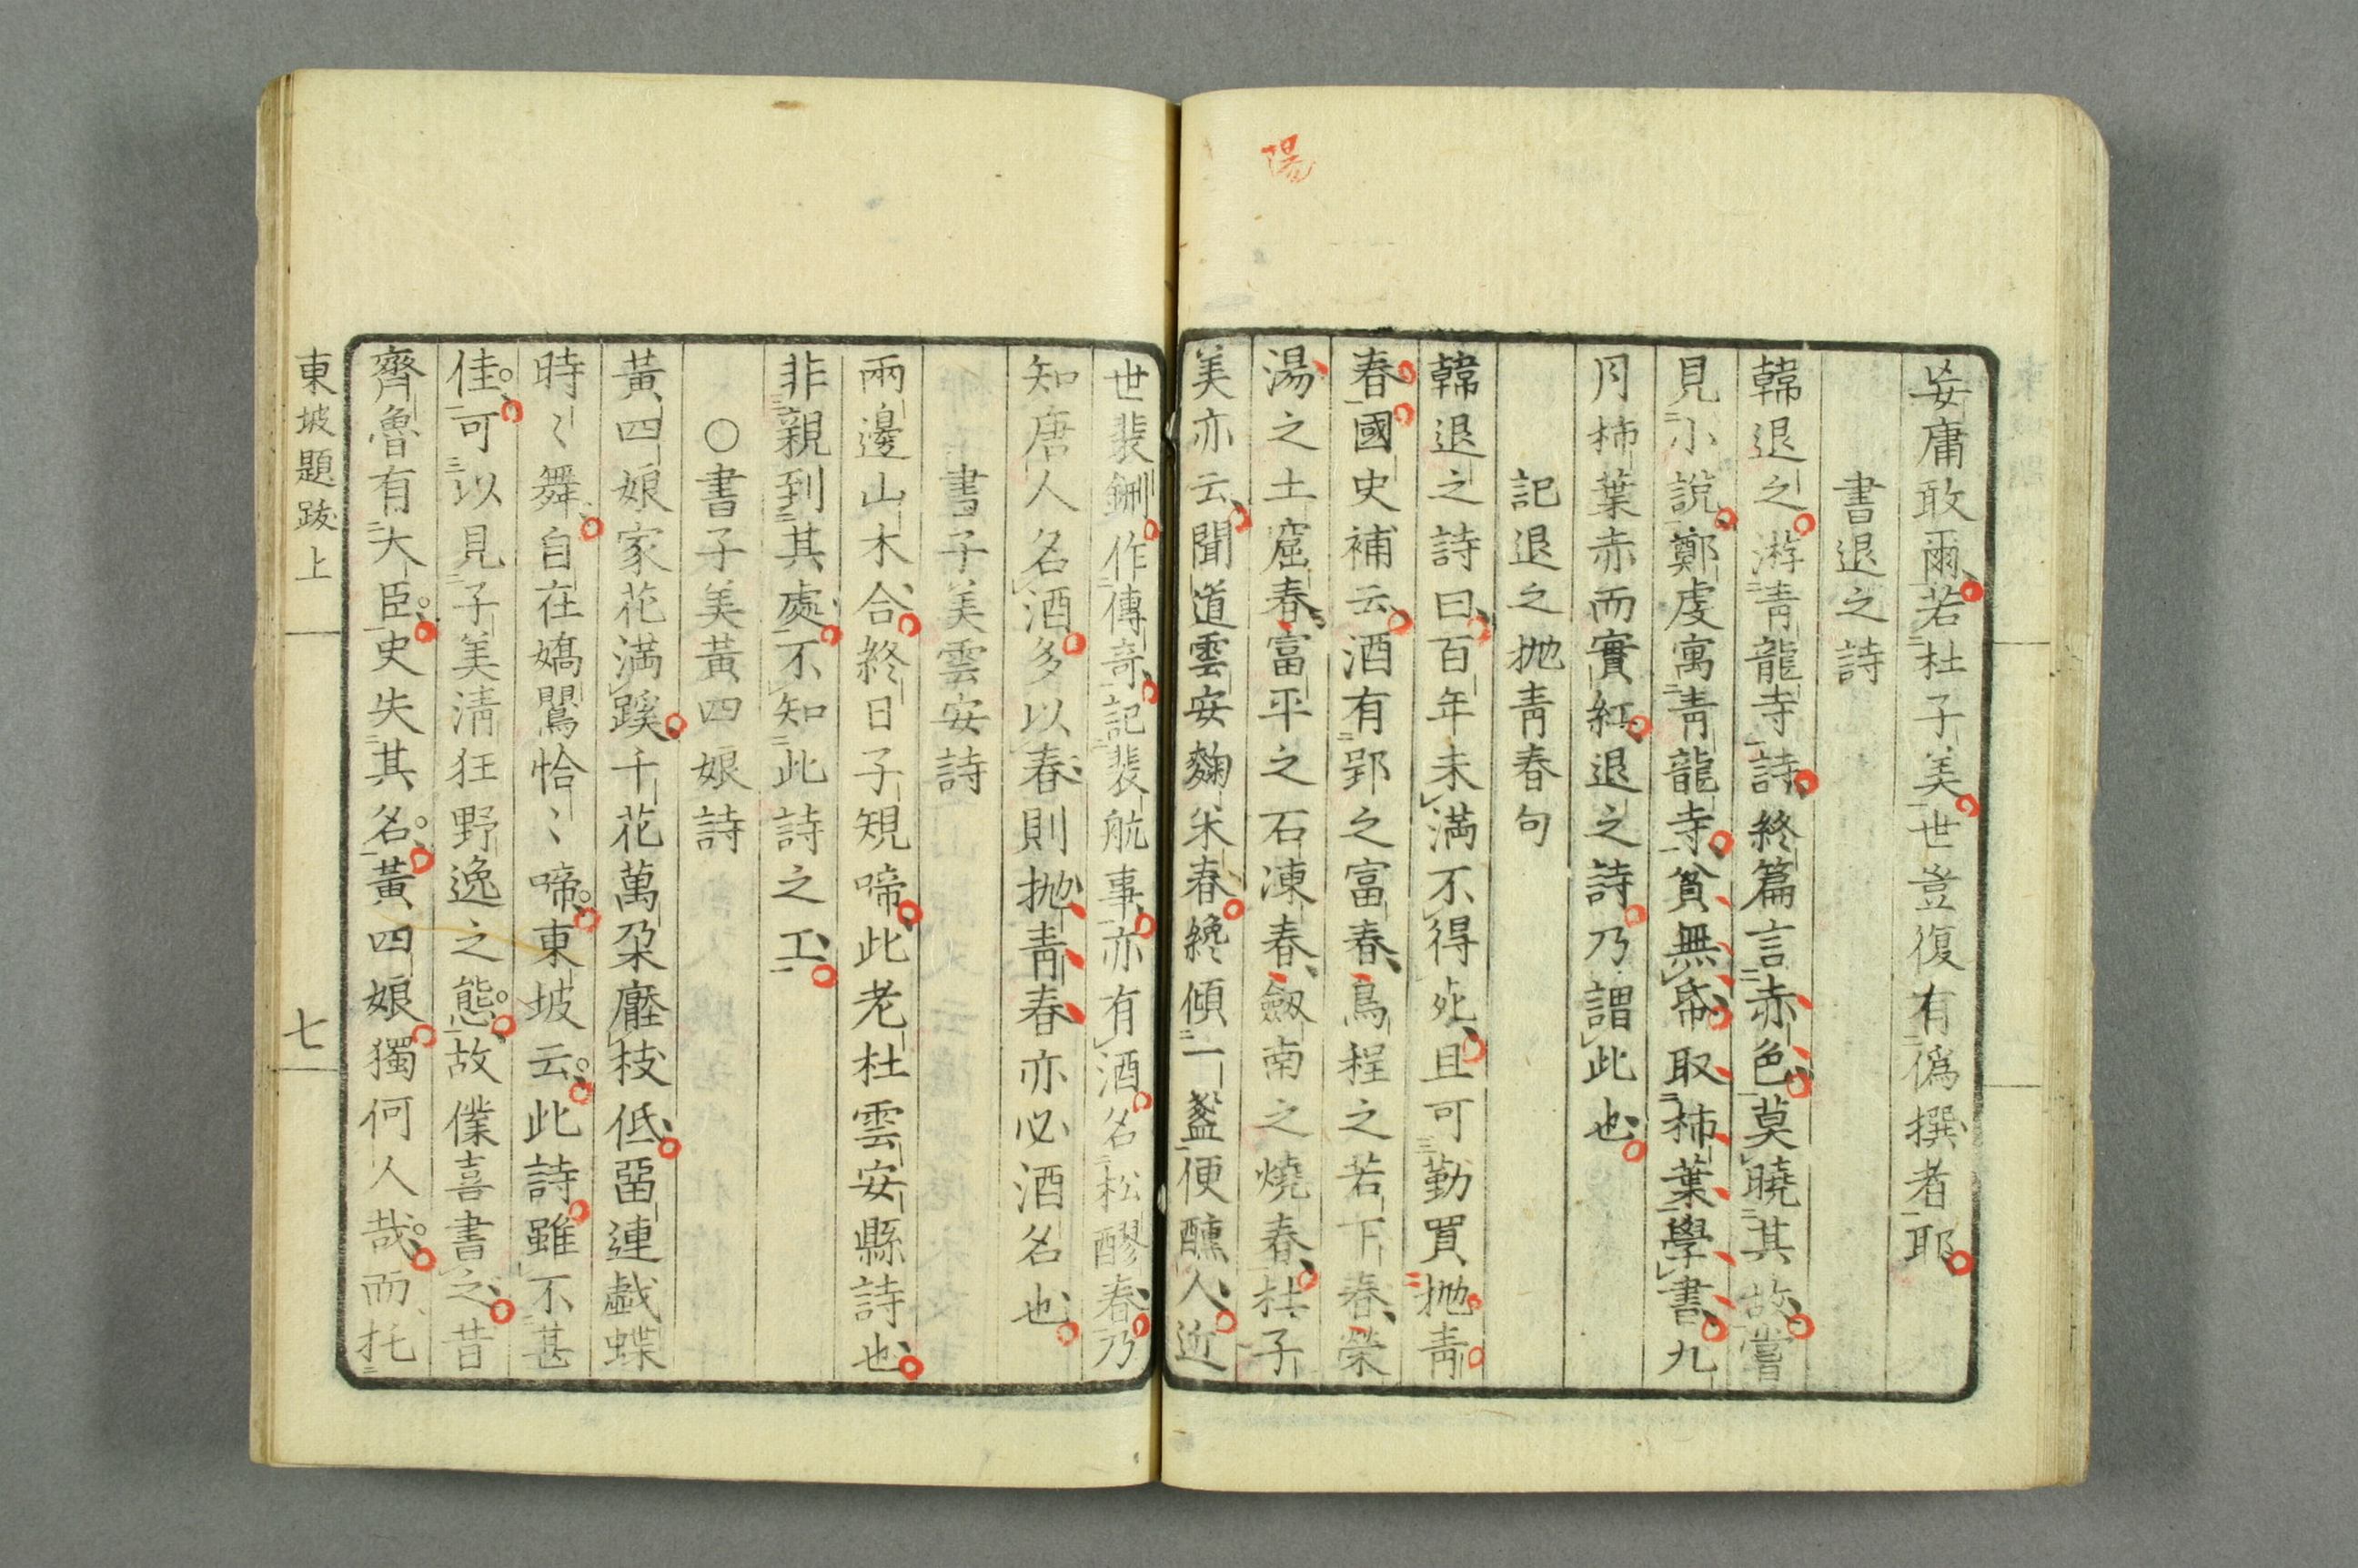 陽
妄庸敢爾若杜子美世豈復有僞撰者耶
書退之詩
韓退之游青龍寺詩終篇言赤色莫曉其故嘗
見小說鄭虔寓青龍寺貧無帋取柿葉學書九
月柿葉赤而實紅退之詩乃謂此也
記退之抛青春句
韓退之詩曰百年未滿不得死且可勤買抛青
春國史補云酒有郢之富春烏程之若下春榮
湯之土窟春富平之石凍春劔南之燒春杜子
美亦云聞道雲安麴米春纔傾一盞便醺人近
世裴鉶作傳竒記裴航事亦有酒名松醪春乃
知唐人名酒多以春則抛青春亦必酒名也
書子美雲安詩
兩邊山木合終日子規啼此老杜雲安縣詩也
非親到其處不知此詩之工
○書子美黃四娘詩
黃四娘家花滿蹊千花萬朶壓枝低畱連戱蝶
時〻舞自在嬌鸎恰〻啼東坡云此詩雖不甚
佳可以見子美清狂野逸之態故僕喜書之昔
齊魯有大臣史失其名黃四娘獨何人哉而托
東坡題跋上
七